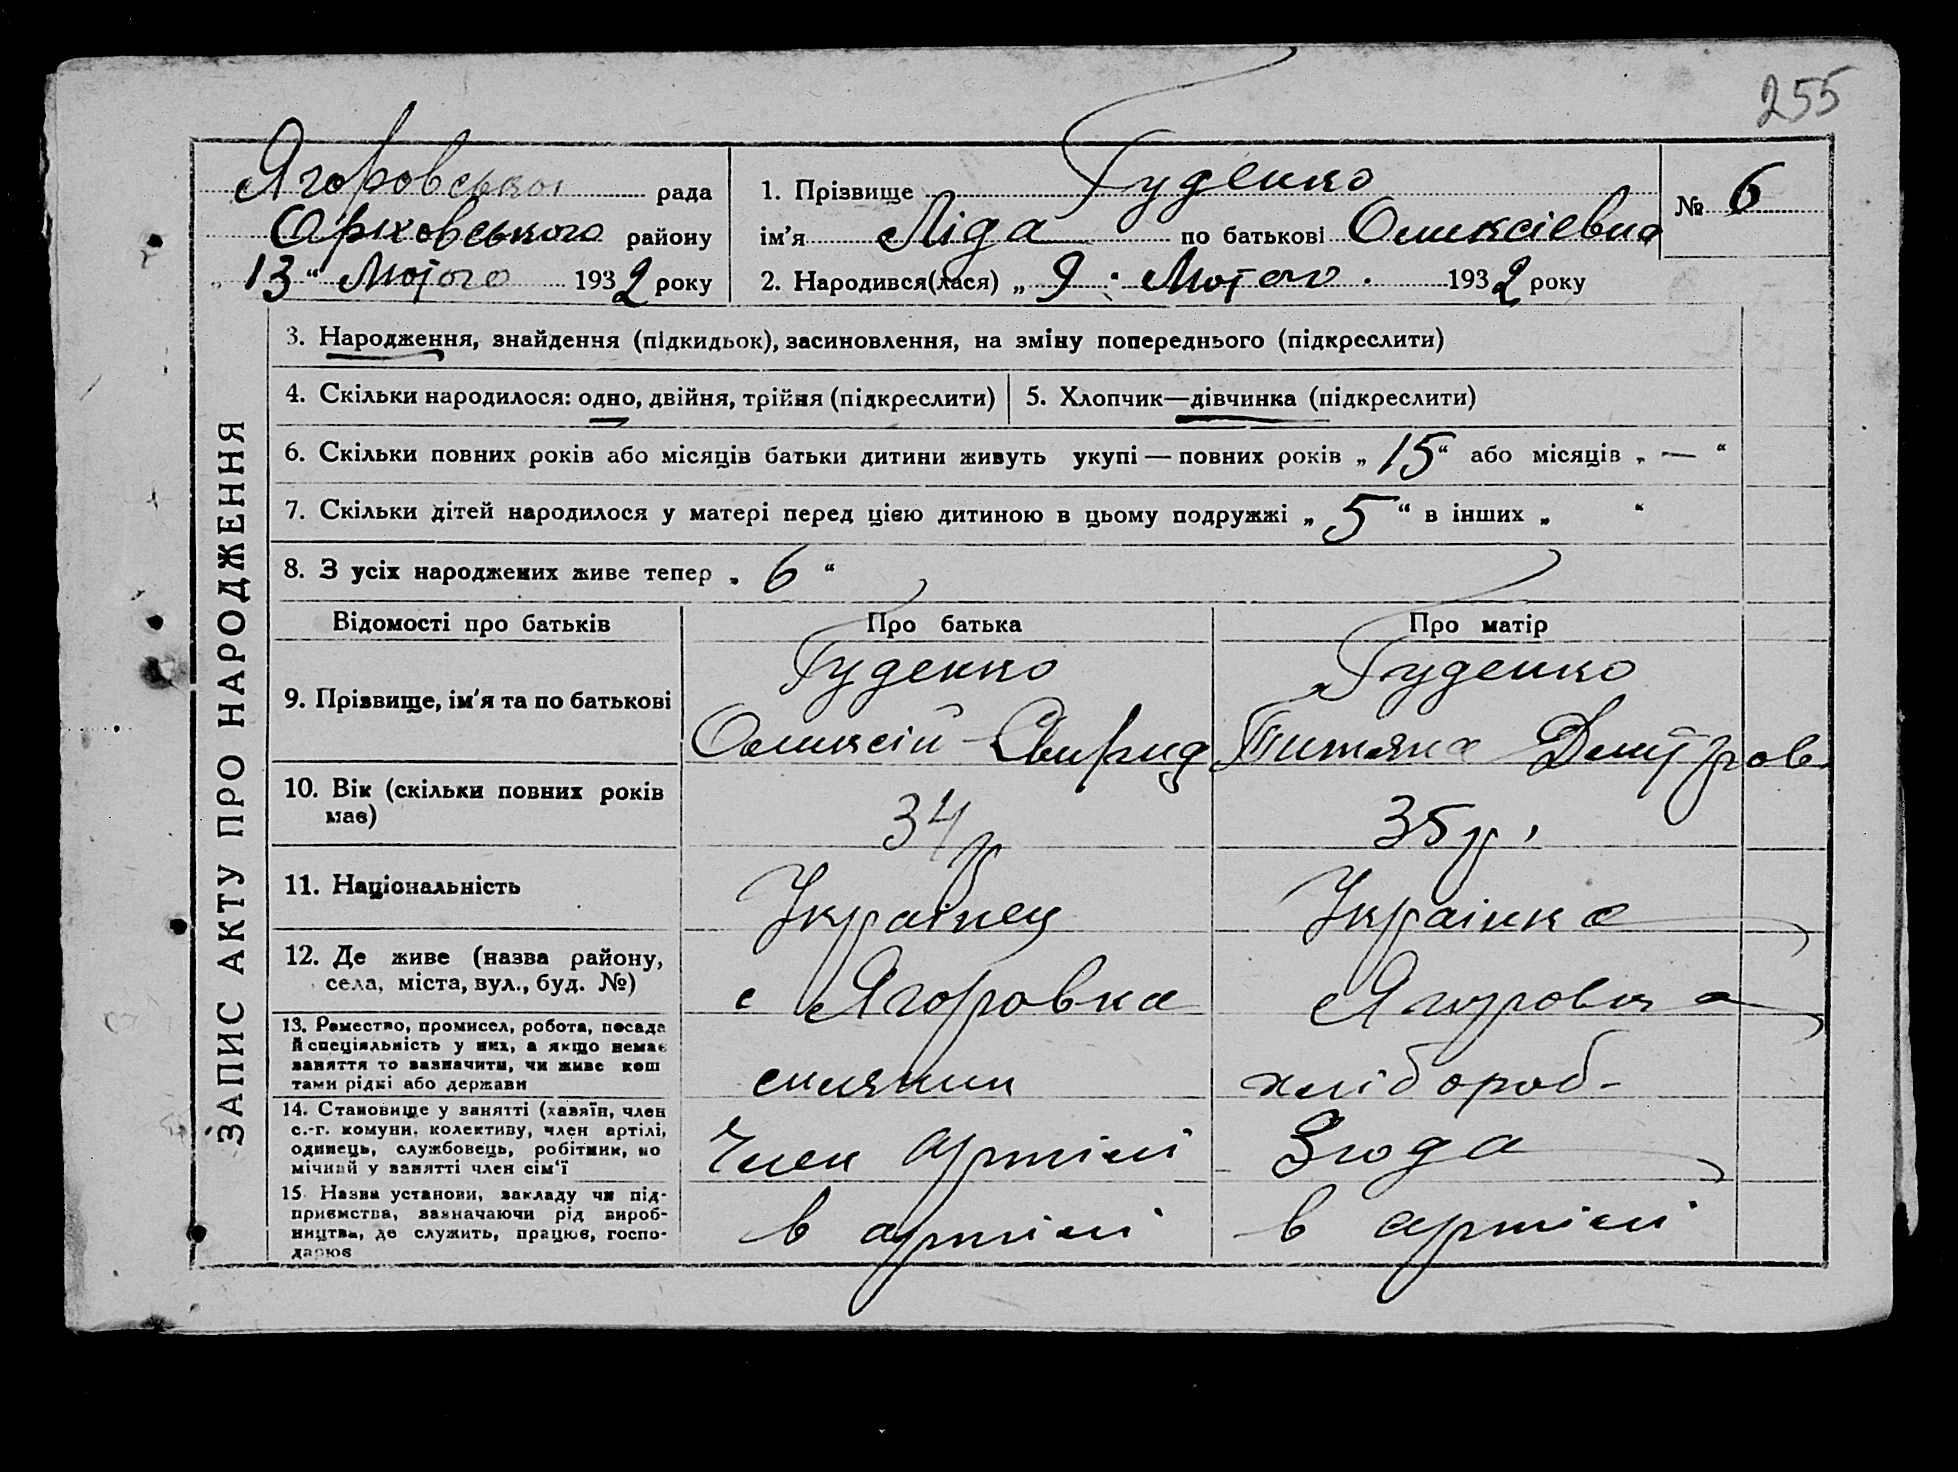 255
Ягоровської рада
Оріховського району
„ 13 “ Лютого 1932 року
1. Прізвище Гуденко
ім’я Ліда по батькові Олексієвна
2. Народився(лася) „ 9 “ Лютого 1932 року
№ 6
ЗАПИС АКТУ ПРО НАРОДЖЕННЯ
3. Народження, знайдення (підкидьок), засиновлення, на зміну попереднього (підкреслити)
4. Скільки народилося: одно, двійня, трійня (підкреслити)
5. Хлопчик—дівчинка (підкреслити)
6. Скільки повних років або місяців батьки дитини живуть укупі — повних років „ 15 “ або місяців „ — “
7. Скільки дітей народилося у матері перед цією дитиною в цьому подружжі „ 5 “ в інших „ “
8. З усіх народжених живе тепер „ 6 “
Відомості про батьків
Про батька
Про матір
9. Прізвище, ім’я та по батькові
Гуденко
Олексій Свирид
Гуденко
Дмитров
10. Вік (скільки повних років
має)
34 р
35 р.
11. Національність
Українец
Українка
12. Де живе (назва району,
села, міста, вул., буд. №)
с Ягоровка
с Ягоровка
13. Ремество, промисел, робота, посада
й спеціяльність у них, а якщо немає
заняття то зазначити, чи живе кош
тами рідні або держави
селянин
хлібороб-
14. Становище у занятті (хазяїн, член
с.-г. комуни, колективу, член артілі,
одинець, службовець, робітник, по
мічний у занятті член сім‘ї
Член артілі
Згода
15. Назва установи, закладу чи під-
приємства, зазначаючи рід вироб-
ництва, де служить, працює, госпо-
дарює
в артілі
в артілі